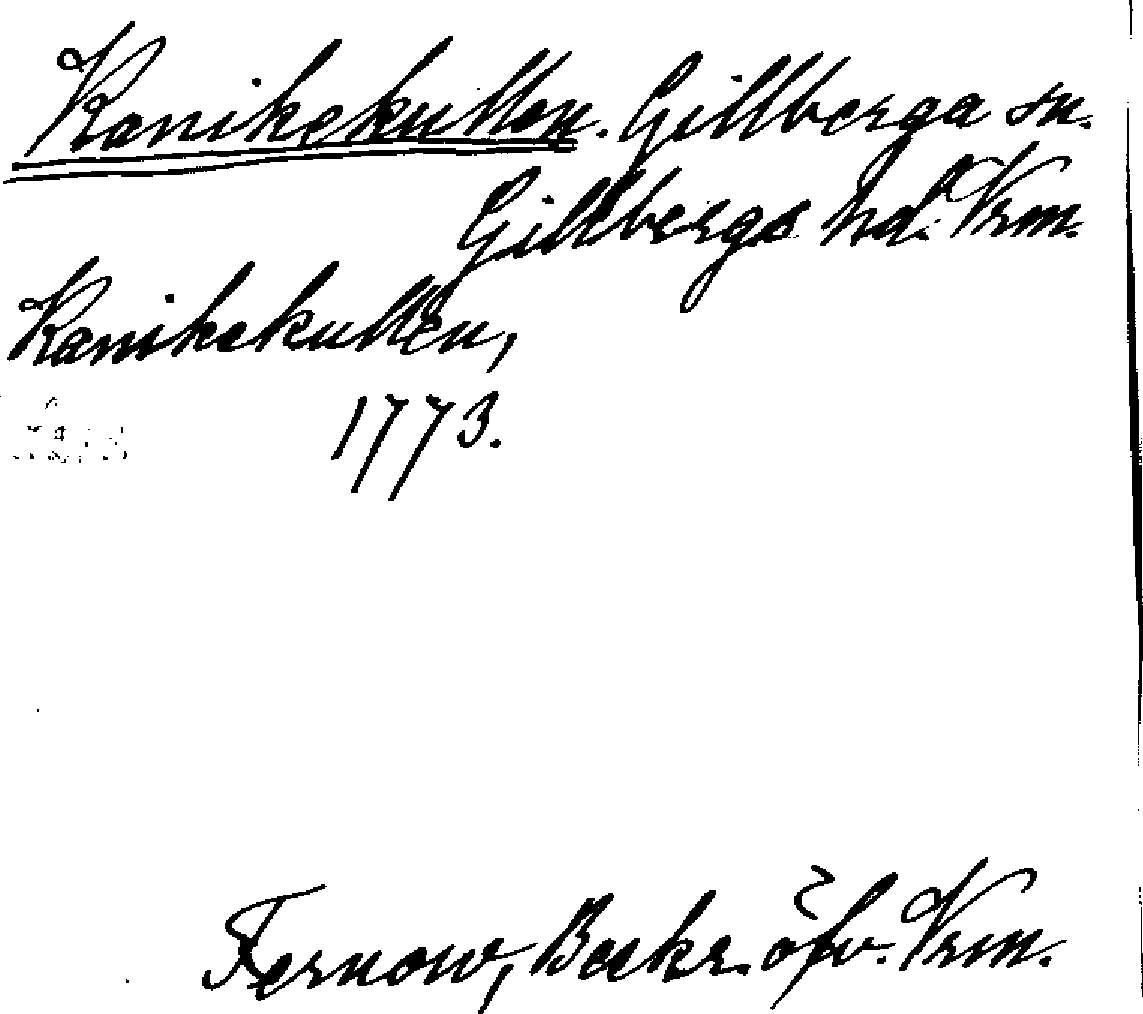 Kanikekullen. Gillberga sn.
Gillbergs hd. Vrm.
Kanikekullen,
1773.
Fernow, Beskr. öfv. Vrm.